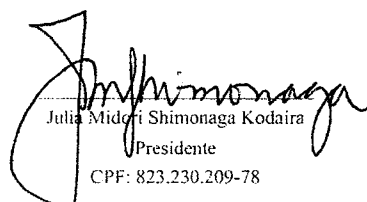 Julia Midori Shimonaga Kodaira
Presidente
CPF: 823.230.209-78